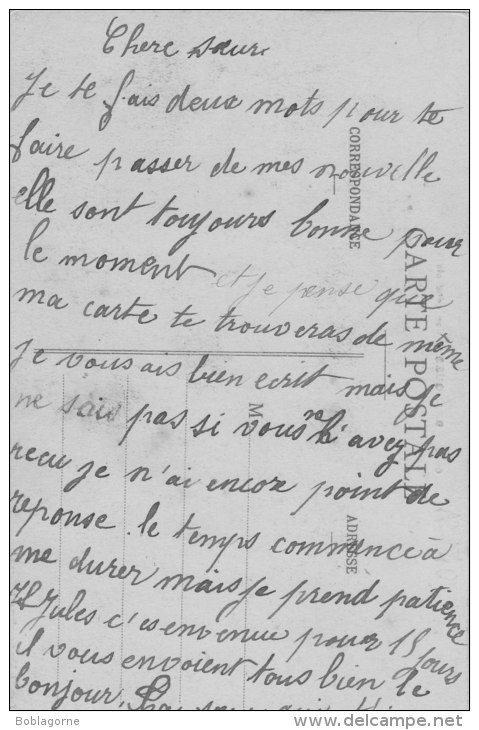 Chere sœur
Je te fais deux mots pour te
faire passer de mes nouvelle
elle sont toujours bonne pour
le moment et je pense que
ma carte te trouveras de même
Je vous ais bien ecrit mais je
ne sais pas si vous ne l'avez pas
recu je n'ai encore point de
reponse. le temps commence à
me durer mais je prend patience
Jules c'es envenue pour 15 jours
il vous envoient tous bien le
bonjour.
CORRESPONDANCE
CARTE POSTALE
M
ADRESSE
Boblagorne
www.delcampe.net